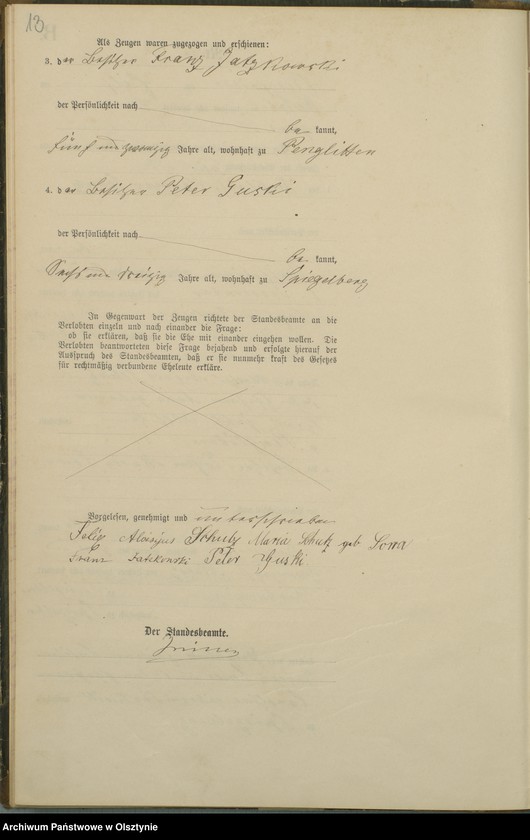 13
Als Zeugen waren zugezogen und erschienen:
3. der Besitzer Franz Jatzkowski
der Persönlichkeit nach
be kannt,
fünf und zwanzig Jahre alt, wohnhaft zu Penglitten
4. der Besitzer Peter Guski
der Persönlichkeit nach
be kannt,
Sechs und dreißig Jahre alt, wohnhaft zu Spiegelberg
In Gegenwart der Zeugen richtete der Standesbeamte an die
Verlobten einzeln und nach einander die Frage:
ob sie erklären, daß sie die Ehe mit einander eingehen wollen. Die
Verlobten beantworteten diese Frage bejahend und erfolgte hierauf der
Ausspruch des Standesbeamten, daß er sie nunmehr kraft des Gesetzes
für rechtmäßig verbundene Eheleute erkläre.
Vorgelesen, genehmigt und unterschrieben
Felix Aloisius Schulz Maria Schulz geb Sorra
Franz Jatzkowski Peter Guski
Der Standesbeamte.
Archiwum Państwowe w Olsztynie